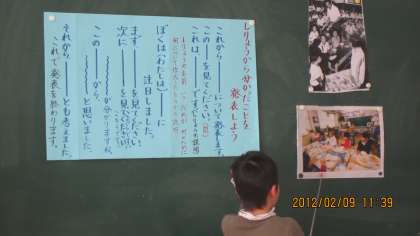 しりょうから分かったことを
発表しよう
これから――について発表します。
この――を見てください。
これは、――です。
ぼくは(わたしは)――に
注目しました。
まず――を見てください。
次に――を見てください。
この――から、
――が分かりますが、
――と思いました。
それから――とも考えました。
これで発表を終わります。
2012/02/09 11:39